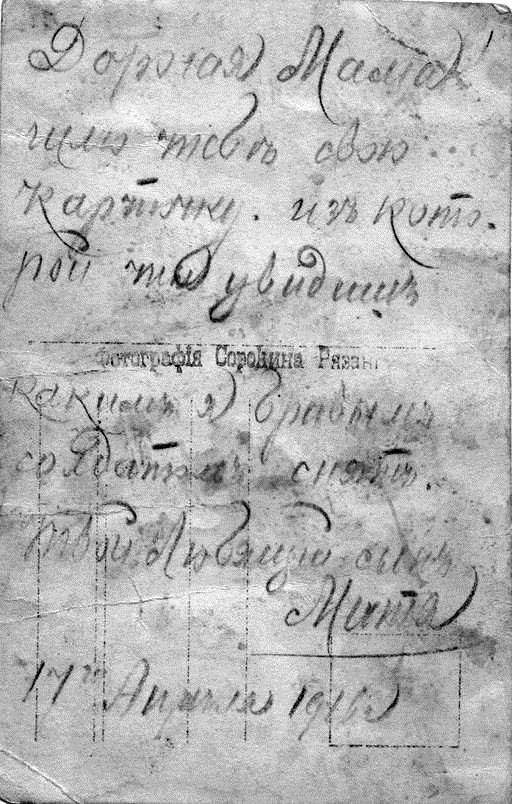 Дорогая Мама!
шлю тебѣ свою
карточку. изъ кото-
рой ты увидишь
Фотографія Сорокина Рязань
какимъ я бравымъ
солдатомъ снятъ.
твой Любящий сынъ
Митя
17го Апреля 1916г